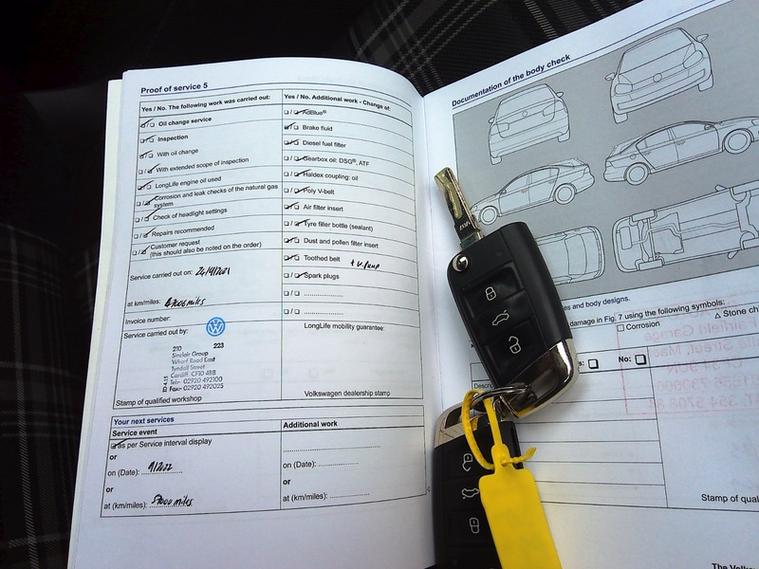 Proof of service 5
Yes / No. The following work was carried out:
Oil change service
Inspection
With oil change
With extended scope of inspection
LongLife engine oil used
Corrosion and leak checks of the natural gas
system
Check of headlight settings
Repairs recommended
Customer request
(this should also be noted on the order)
Service carried out on:
at km/miles: miles
Invoice number:
Service carried out by:
210 223
Sinclair Group
Wharf Road East
Tyndall Street
Cardiff CF10 4BB
Tel:- 02920 492100
Fax:- 02920 492025
Stamp of qualified workshop
Yes / No. Additional work - Change of:
AdBlue®
Brake fluid
Diesel fuel filter
Gearbox oil: DSG®, ATF
Haldex coupling: oil
Poly V-belt
Air filter insert
Tyre filler bottle (sealant)
Dust and pollen filter insert
Toothed belt + w.pump
Spark plugs
LongLife mobility guarantee:
Volkswagen dealership stamp
Your next services
Service event
as per Service interval display
or
on (Date): 9/2022
or
at (km/miles): 57000 miles
Additional work
on (Date):
or
at (km/miles):
Documentation of the body check
es and body designs.
damage in Fig. 7 using the following symbols:
Corrosion
Stone ch
es:
No:
Descri
Stamp of qual
The Volksw